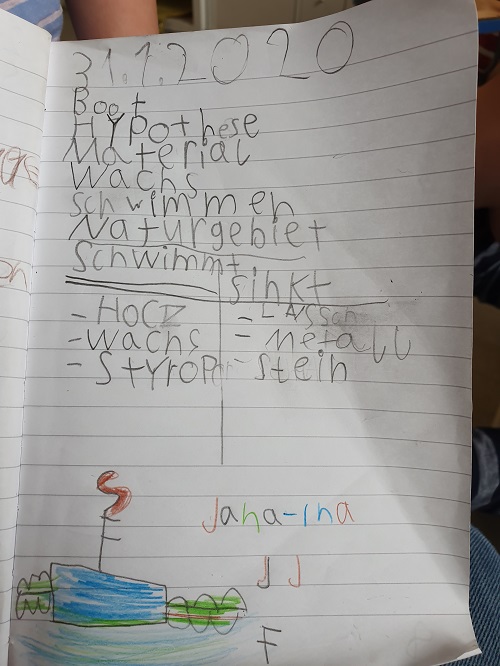 31.1.2020
Boot
Hypothese
Material
Wachs
schwimmen
Naturgebiet
Schwimmt
sinkt
- HOLZ
- wachs - Metall
- Styropor - Stein
S
F
Jana-Ina
J J
F